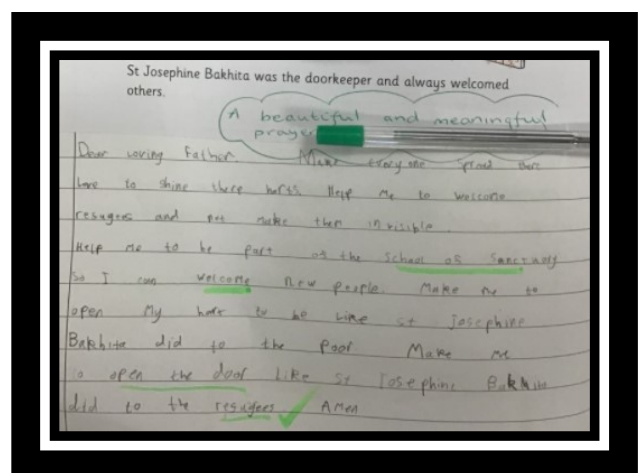 St Josephine Bakhita was the doorkeeper and always welcomed
others.
A beautiful and meaningful
prayer
Dear loving Father. Make every one
love to shine there harts. Help me to welcome
resugees and not make them invisible.
Help me to be part of the School of Sanctuaty
So I can welcome new people. Make me to
open my hart to be like st Josephine
Bakhita did to the poor. Make me
to open the door like St Josephine Bakhita
did to the resugees Amen